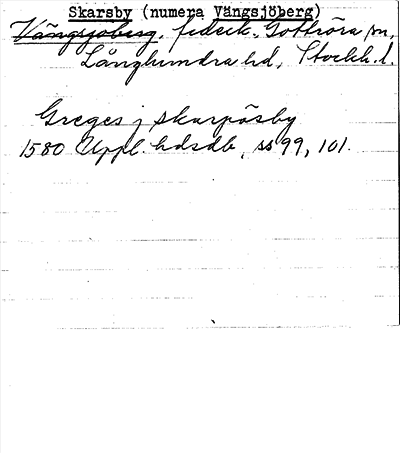 Skarsby (numera Vängsjöberg)
Vängsjöberg, fideik. Gottröra sn,
Långhundra hd, Stockh. l.
Greges j Skarpåsby
1580 Uppl. hdsdb, ss 99, 101.